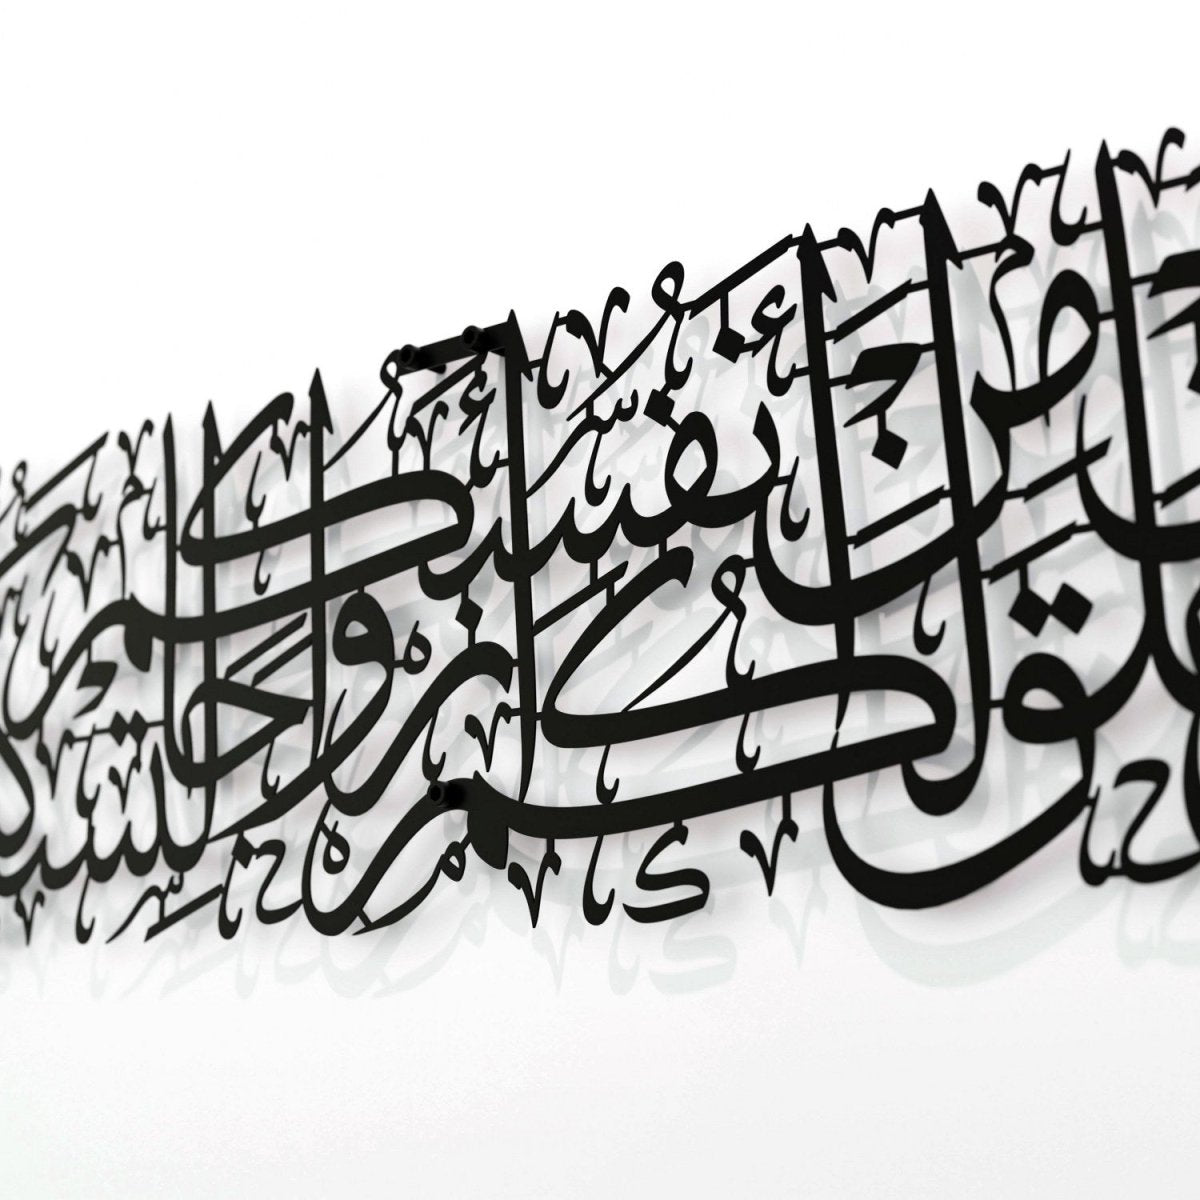 خَلَقَ لَكُمْ مِنْ أَنْفُسِكُمْ أَزْوَاجًا لِتَسْكُنُوا